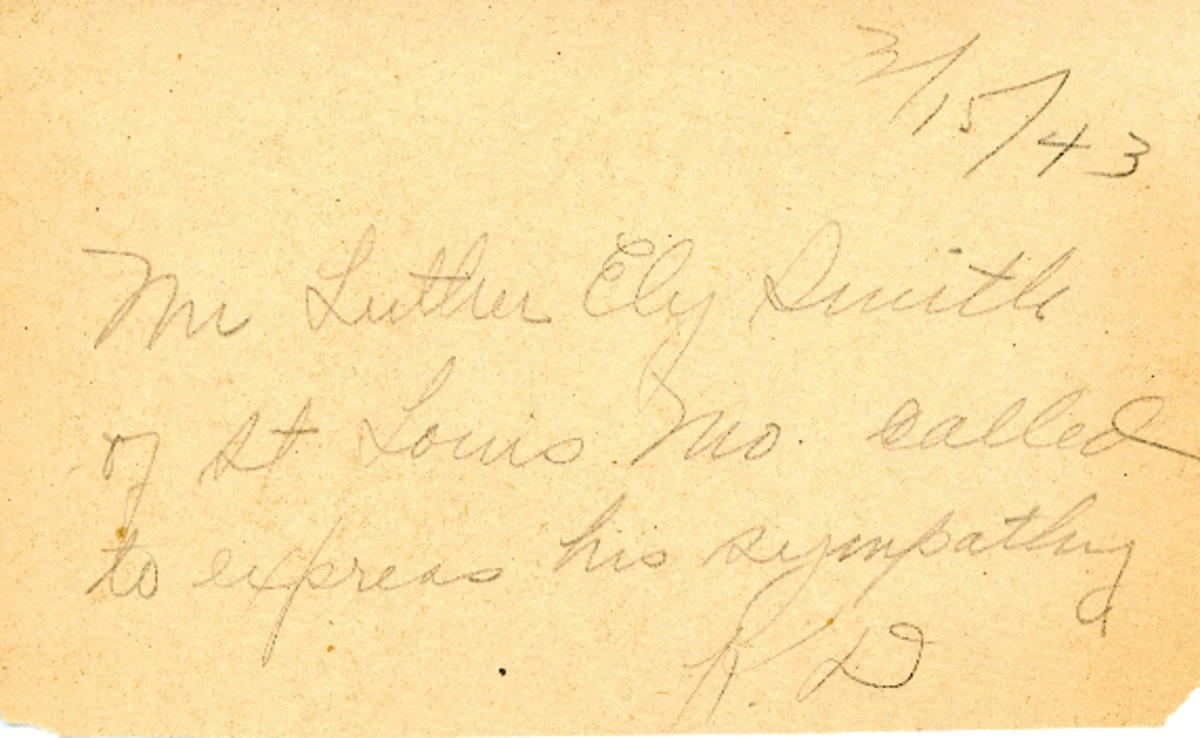 2/15/43
Mr Luther Ely Smith
of St Louis Mo. called
to express his sympathy
K. D